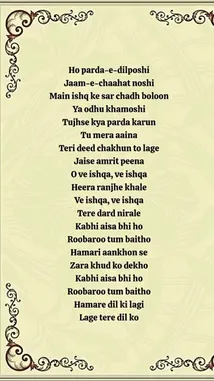 Ho parda-e-dilposhi
Jaam-e-chaahat noshi
Main ishq ke sar chadh boloon
Ya odhu khamoshi
Tujhse kya parda karun
Tu mera aaina
Teri deed chakhun to lage
Jaise amrit peena
O ve ishqa, ve ishqa
Heera ranjhe khale
Ve ishqa, ve ishqa
Tere dard nirale
Kabhi aisa bhi ho
Roobaroo tum baitho
Hamari aankhon se
Zara khud ko dekho
Kabhi aisa bhi ho
Roobaroo tum baitho
Hamare dil ki lagi
Lage tere dil ko